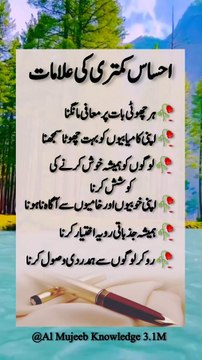 احساس کمتری کی علامات
ہر چھوٹی بات پر معافی مانگنا
اپنی کامیابیوں کو بہت چھوٹا سمجھنا
لوگوں کو ہمیشہ خوش کرنے کی
کوشش کرنا
اپنی خوبیوں اور خامیوں سے آگاہ نا ہونا
ہمیشہ جذباتی رویہ اختیار کرنا
رو کر لوگوں سے ہمدردی وصول کرنا
@Al Mujeeb Knowledge 3.1M